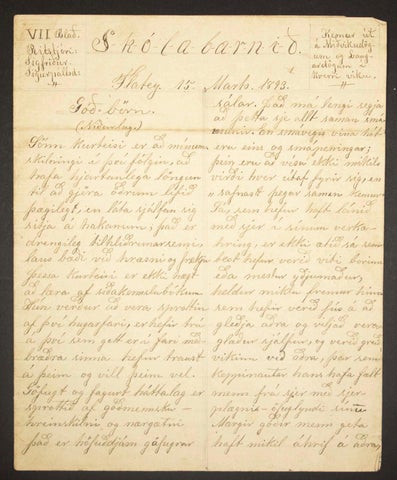 VII Blað.
Ritstjóri.
Sigfríður.
Sigurhalladr.
Skólabarnið.
Kemur út
á Miðvikudög-
um og Laug-
ardögum á
hverri viku.
Flatey. 15. Marts. 1893.
Góð-börn.
(Niðurlag.)
Sönn kurteisi er að mínum
skilningi í því fólgin, að
hafa hjartanlega löngun
til að gjöra öðrum lífið
þægilegt, en láta sjálfan sig
sitja á hakanum, það er
drengileg tilhliðrunarsemi,
laus bæði við hræsni og
þessa kurteisi er ekki hægt
að læra af siðalærdómsbókum
Hún verður að vera sprottin
af því hugarfari, er hefur trú
á því sem gott er í fari með-
bræðra sinna hefur traust
á þeim og vill þeim vel.
Göfugt og fagurt háttalag er
sprottið af góðmennsku
hreinskilni og nærgætni
það er höfuðdjásn göfugrar
sálar. Það má lengi segja
að þetta sje allt saman smá-
munir. En smávegis vina hót
eru eins og smápeningar;
þeir eru að vísu ekki mikils
virði hver útaf fyrir sig, en
safnast þegar saman kemur
Sá, sem hefur haft lánið
með sjer í sínum verka-
hring, er ekki ætíð sá sem
best hefur verið viti borinn
eða mestur djúmaður,
heldur miklu fremur hinn
sem hefur verið fús á að
gleðja aðra og viljað vera
glaður sjálfur, og verið greið-
vikinn við aðra, þar sem
keppinautar hans hafa fælt
menn frá sjer með sjer-
plægnis-ófuglyndi sínu
Margir góðir menn geta
haft mikil áhrif á aðra,